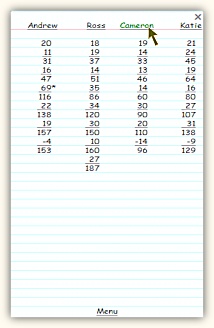 Andrew Ross Cameron Katie
20 18 19 21
11 19 14 24
31 37 33 45
16 14 13 19
47 51 46 64
69* 35 14 16
116 86 60 80
22 34 30 27
138 120 90 107
19 30 20 31
157 150 110 138
-4 10 -14 -9
153 160 96 129
27
187
Menu